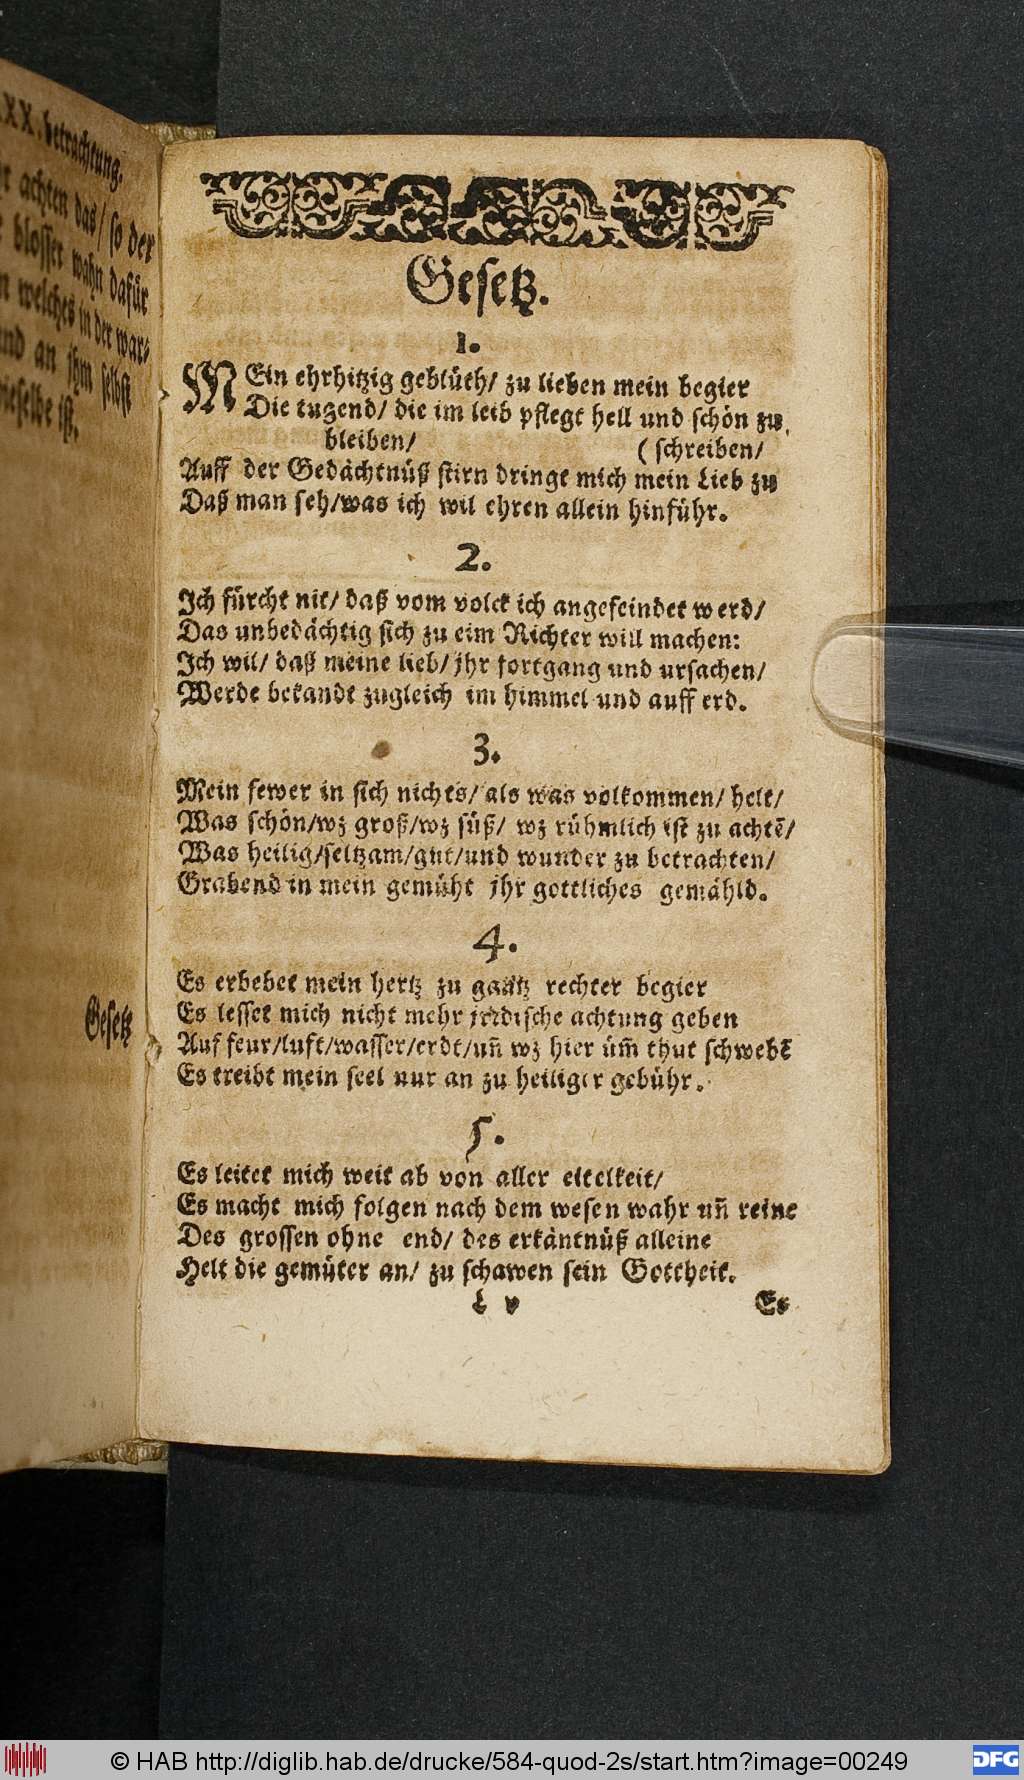 XX. betrachtung.
achten das/ so der
blosser wahn dafür
welches in der war-
und an jhm selbst
dieselbe ist.
Gesetz
Gesetz.
1.
MEin ehrhitzig geblüth/ zu lieben mein begier
Die tugend/ die im leib pflegt hell und schön zu
bleiben/ ( schreiben/
Auff der Gedächtnüß stirn dringt mich mein Lieb zu
Daß man seh/was ich wil ehren allein hinführ.
2.
Ich fürcht nit/ daß vom volck ich angefeindet werd/
Das unbedächtig sich zu eim Richter will machen:
Ich wil/ daß meine lieb/ jhr fortgang und ursachen/
Werde bekandt zugleich im himmel und auff erd.
3.
Mein fewer in sich nichts/ als was volkommen/ helt/
Was schön/wz groß/wz süß/ wz rühmlich ist zu achtē/
Was heilig/seltzam/gut/und wunder zu betrachten/
Grabend in mein gemüht jhr gottliches gemähld.
4.
Es erhebet mein hertz zu gantz rechter begier
Es lesset mich nicht mehr jrrdische achtung geben
Auf feur/luft/wasser/erdt/uñ wz hier üm̃ thut schwebē
Es treibt mein seel nur an zu heiliger gebühr.
5.
Es leitet mich weit ab von aller eitelkeit/
Es macht mich folgen nach dem wesen wahr uñ reine
Des grossen ohne end/ des erkäntnüß alleine
Helt die gemüter an/ zu schawen sein Gottheit.
L v Es
© HAB http://diglib.hab.de/drucke/584-quod-2s/start.htm?image=00249
DFG